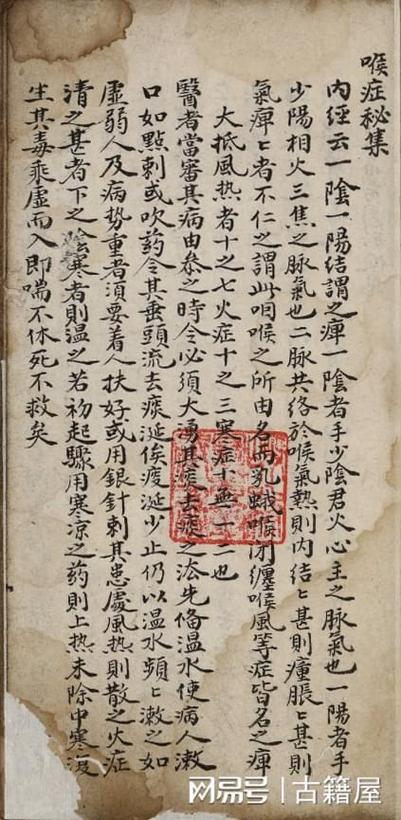 喉症秘集
內經云一陰一陽結謂之痺一陰者手少陰君火心主之脉氣也一陽者手
少陽相火三焦之脉氣也二脉共络於喉氣熱則内结〻甚則瘇脹〻甚則
氣痺〻者不仁之謂此咽喉之所由名而乳蛾喉闭纏喉風等症皆名之痺
大抵風热者十之七火症十之三寒症十無一二也
醫者當審其病由叅之時令必須大湧其痰去痰之法先俻温水使病人漱
口如點刺或吹药令其垂頭流去痰涎俟痰涎少止仍以温水頻〻漱之如
虛弱人及病势重者須要着人扶好或用银針刺其患處風热則散之火症
清之甚者下之陰寒者則温之若初起驟用寒凉之药則上热未除中寒復
生其毒乘虛而入即喘不休死不救矣
网易号 | 古籍屋